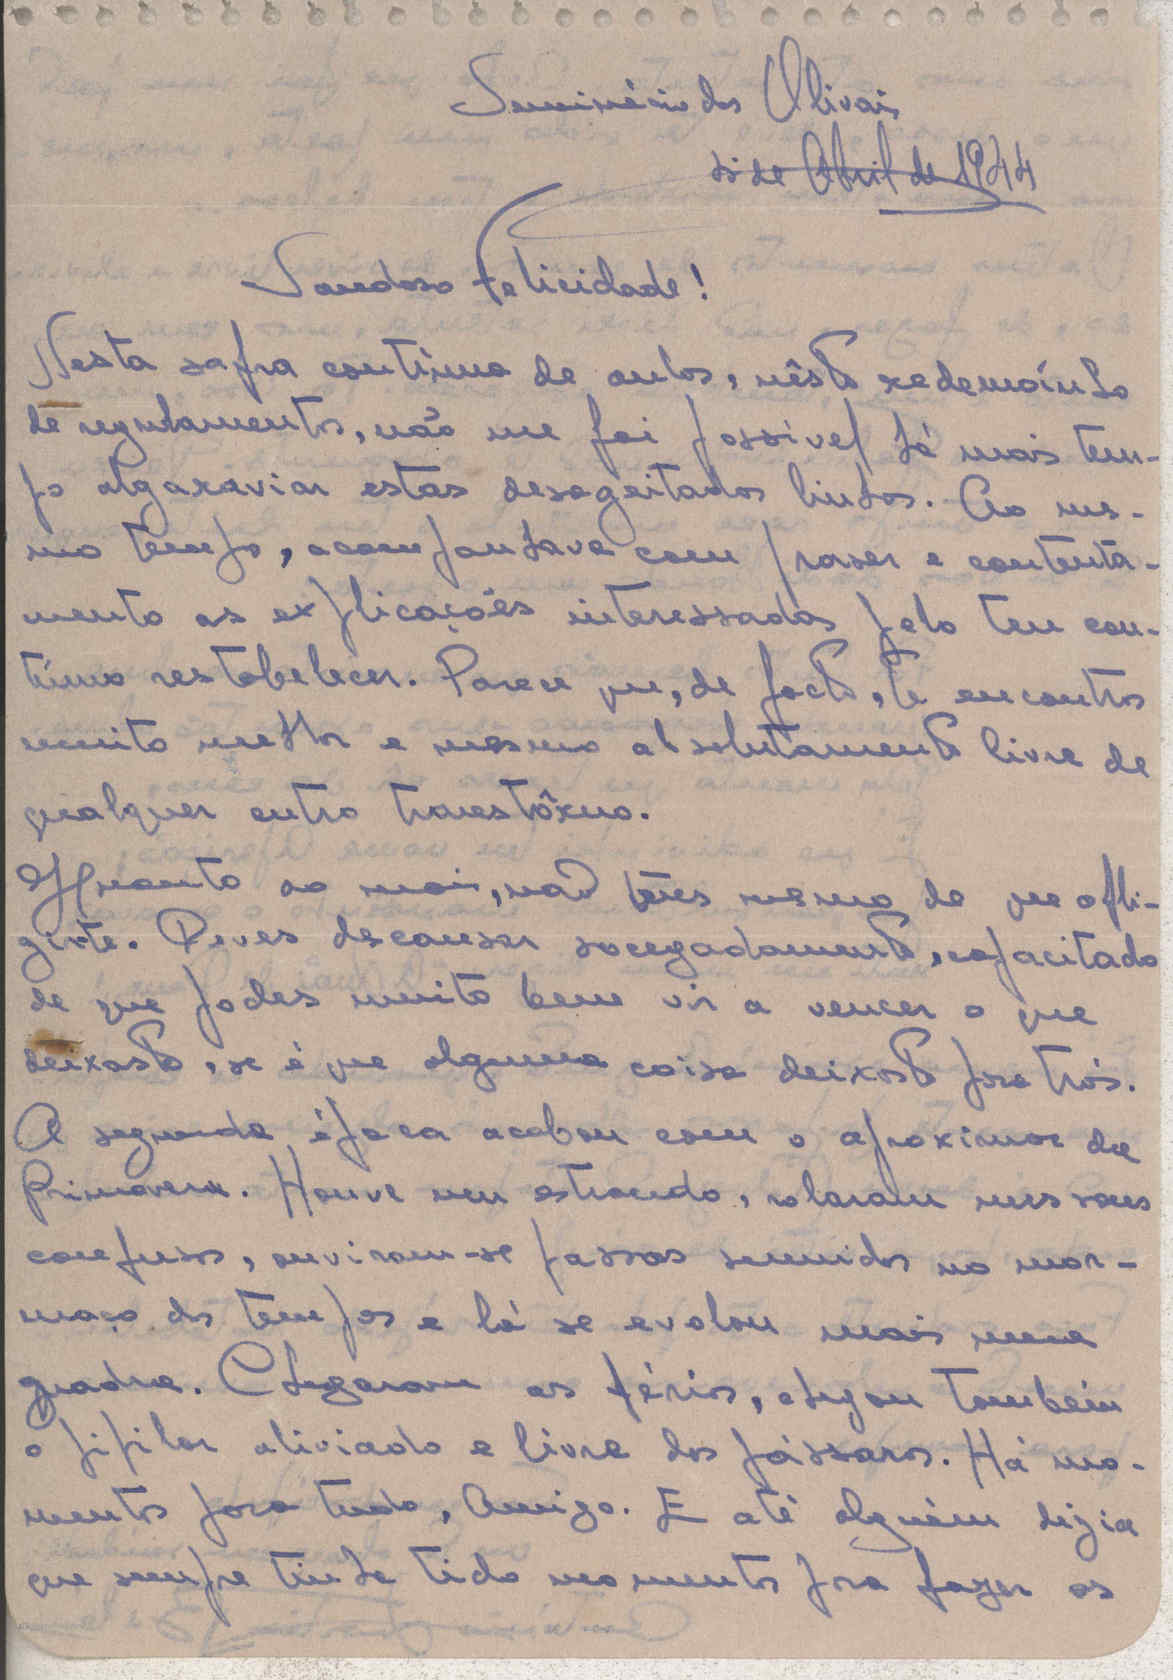 Seminário dos Olivais
de Abril de 1944
Saudoso Felicidade!
Nesta safra contínua de aulas, nêste redemoínho
de regulamentos, não me foi possivel há mais tem-
po algaraviar estas desageitadas linhas. Ao mes-
mo tempo, acompanhava com prazer e contenta-
mento as explicações interessadas pelo teu con-
tínuo restabelecer. Parece que, de facto, te encontras
muito melhor e mesmo absolutamente livre de
qualquer outro transtôrno.
Quanto ao mais, não tens mesmo de que afli-
gir-te. Deves descansar socegadamente, capacitado
de que podes muito bem vir a vencer o que
deixaste, se é que alguma coisa deixaste para trás.
A segunda época acabou com o aproximar da
Primavera. Houve um estrondo, rolaram uns sons
confusos, ouviram-se passos sumidos no mor-
maço dos tempos e lá se evolou mais uma
quadra. Chegaram as férias, chegou também
o pipilar aliviado e livre dos pássaros. Há mo-
mentos para tudo, Amigo. E até alguém dizia
que sempre tinha tido momentos para fazer as